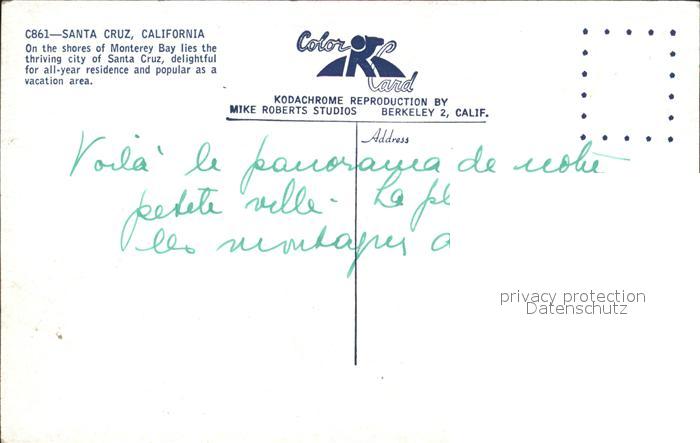 C861—SANTA CRUZ, CALIFORNIA
On the shores of Monterey Bay lies the
thriving city of Santa Cruz, delightful
for all-year residence and popular as a
vacation area.
Color Card
KODACHROME REPRODUCTION BY
MIKE ROBERTS STUDIOS BERKELEY 2, CALIF.
Address
Voilà le panorama de notre
petite ville - La pl
les montagnes a
privacy protection
Datenschutz